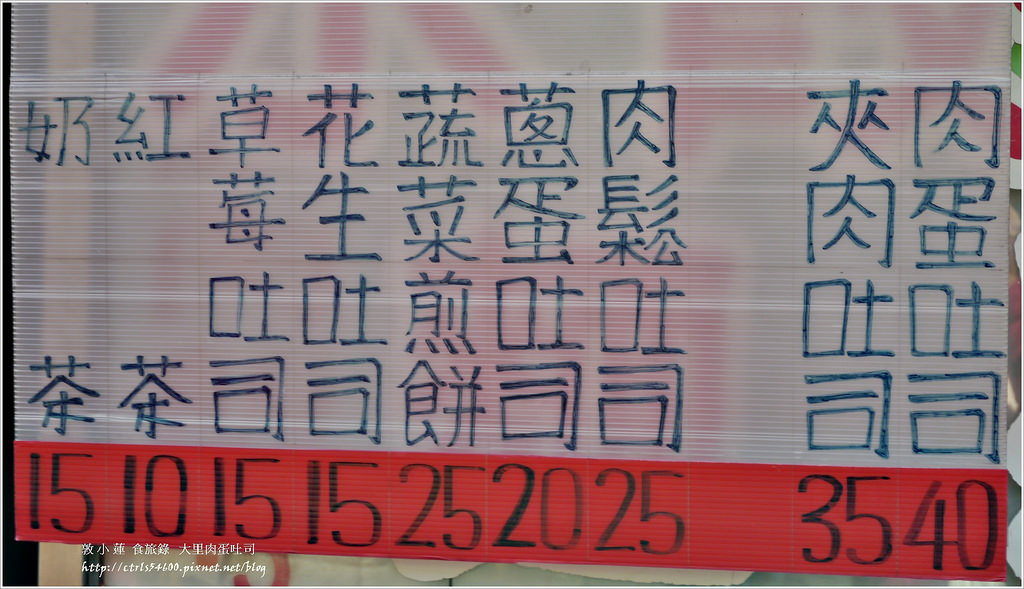 肉蛋吐司 40
夾肉吐司 35
肉鬆吐司 25
蔥蛋吐司 20
蔬菜煎餅 25
花生吐司 15
草莓吐司 15
紅茶 10
奶茶 15
敦小蓮 食旅錄 大里肉蛋吐司
http://ctrls54600.pixnet.net/blog